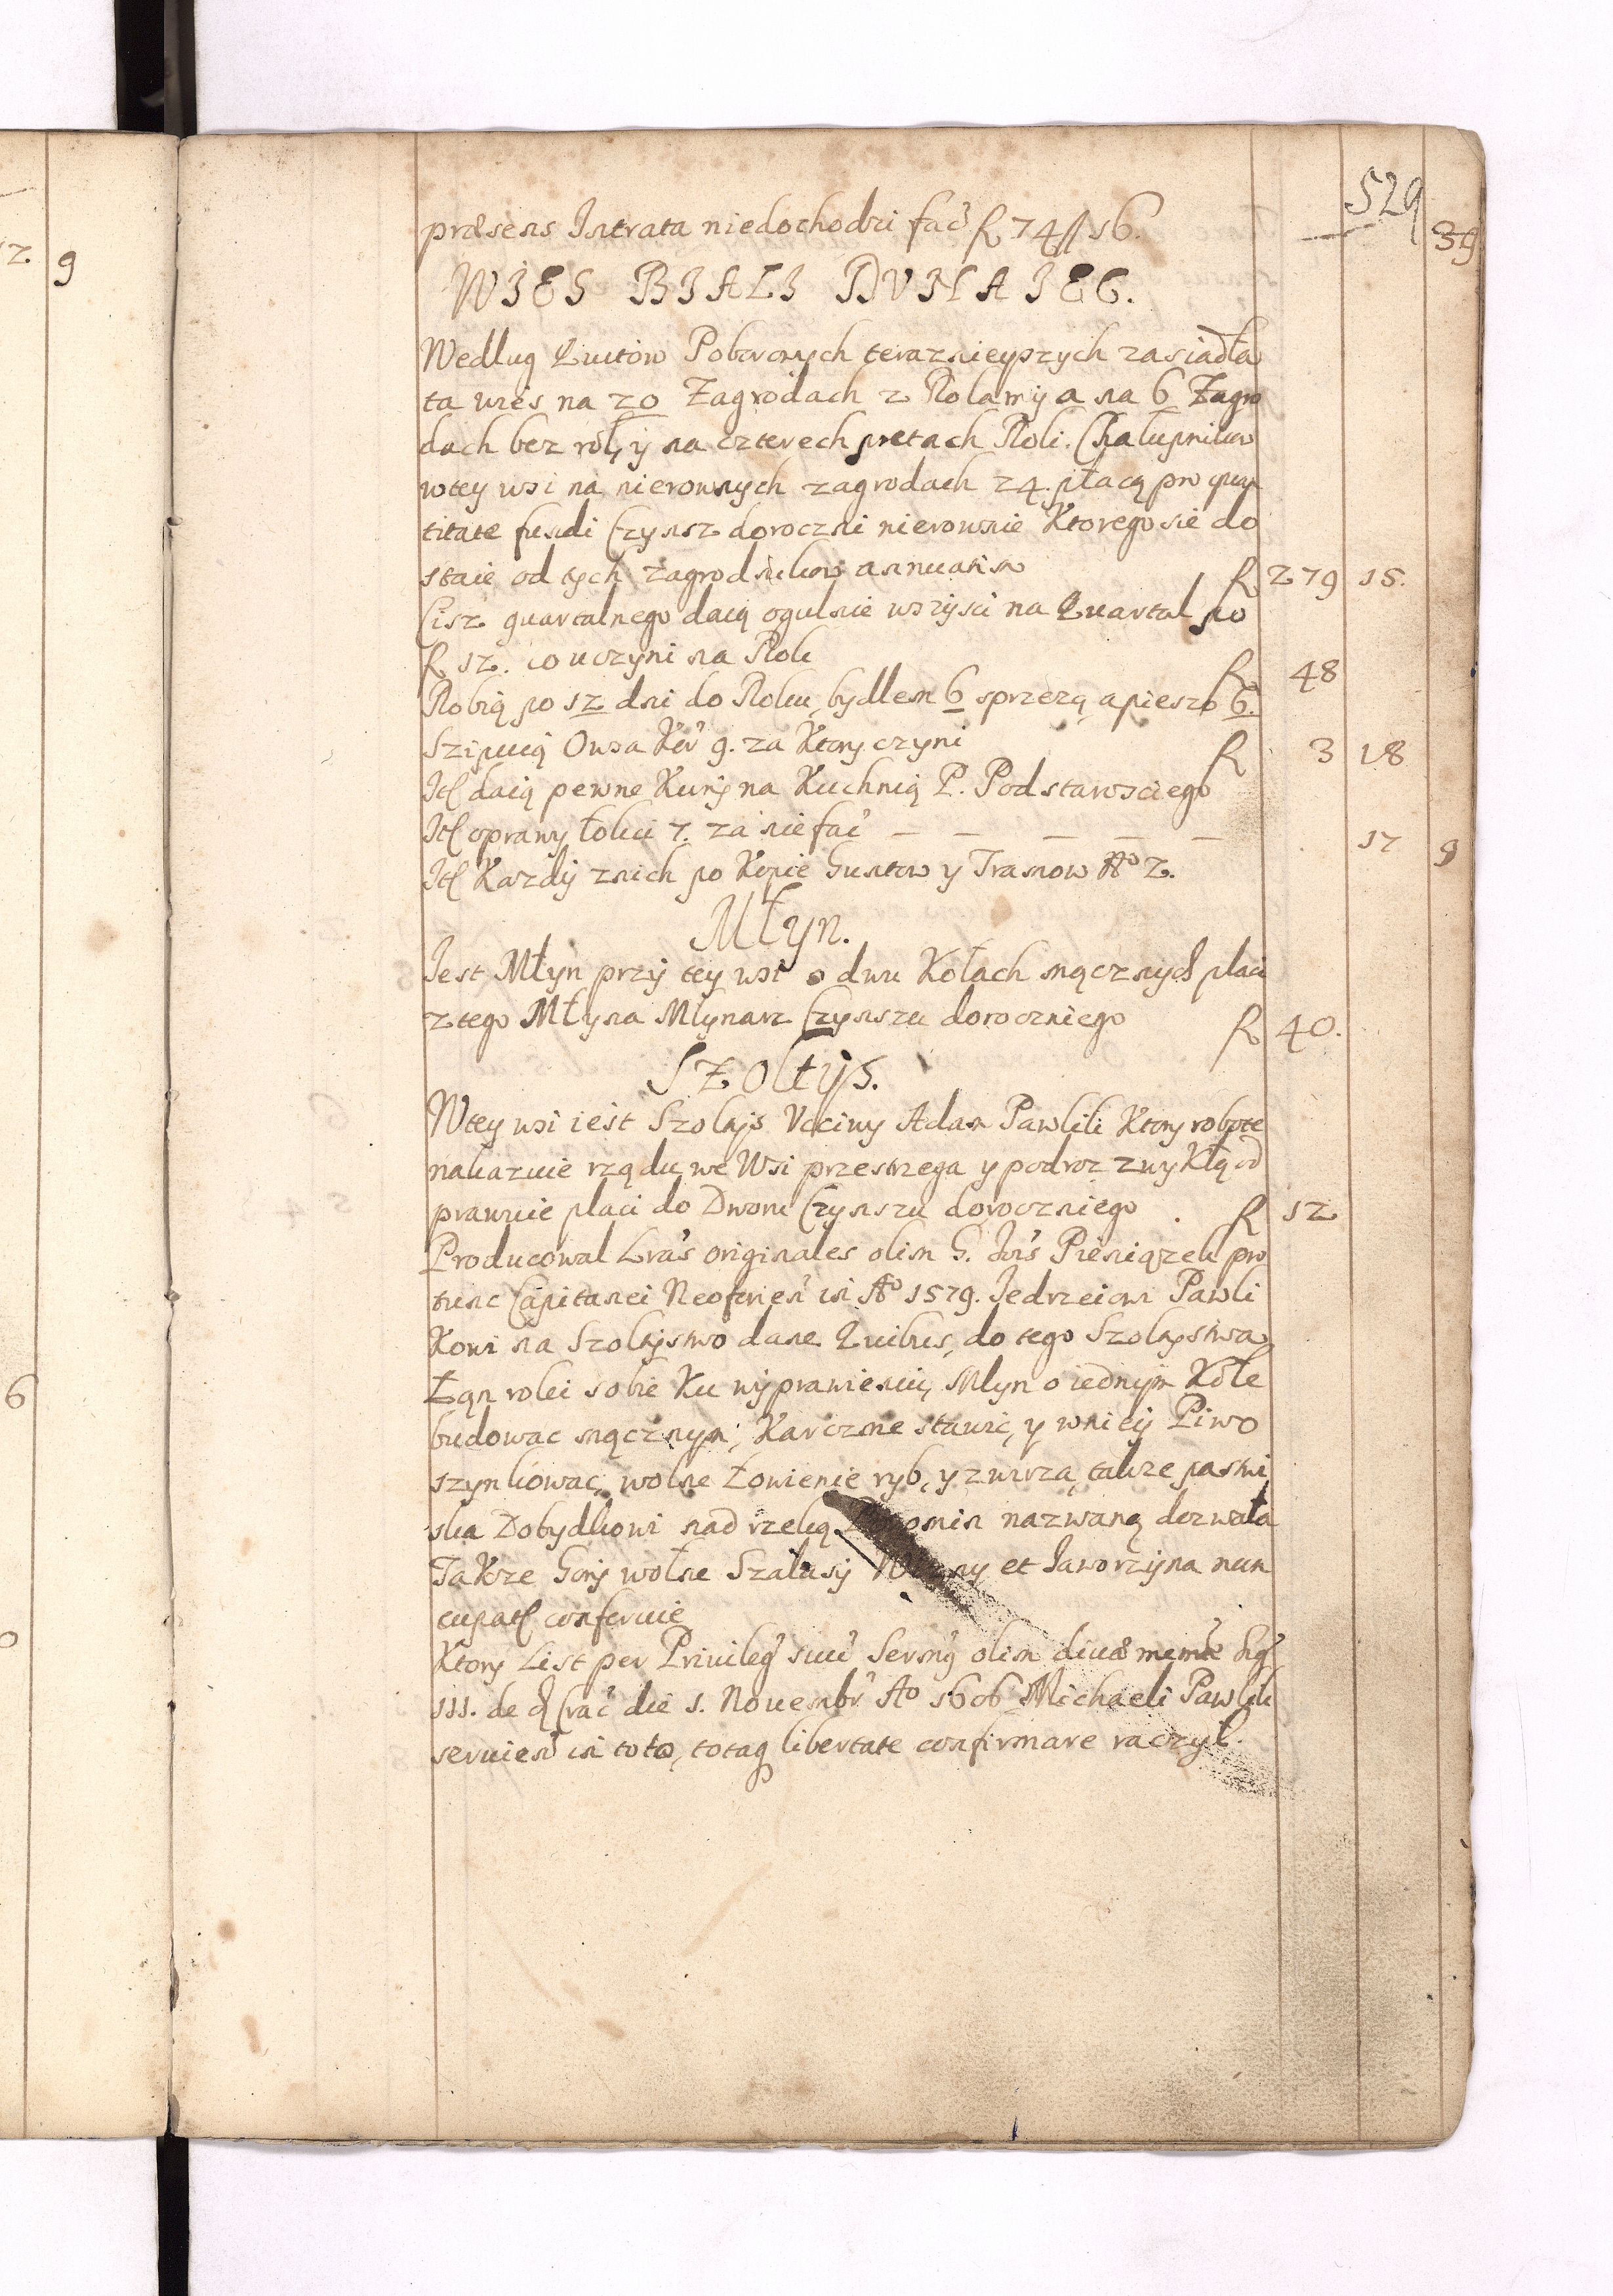 529
39
præsens Intrata niedochodzi fac̄ fl 74 // 16.
WIES BIALI DVNAIEC.
Wedlug Quitow Poborowych teraznieyszych zasiadła
ta wies na 20 Zagrodach z Rolamÿ a na 6 Zagro
dach bez rol, ÿ na czterech pretach Roli. Chalupnikow
wtey wsi na nierownych zagrodach 24. płacą pro quan
titate fundi Czynsz doroczni nierownie Ktorego sie do
staie od tych zagrodnikow annuatim fl 279 15.
Cisz quartalnego daią ogulnie wszysci na Quartal po
fl 12. co uczyni na Rok fl 48
Robią po 12 dni do Roku, bydlem 6 sprzezą, apieszo 6.
Szipuią Owsa Kor̄ 9. za Ktory czyni fl 3 18
Itl daią pewne Kurÿ na Kuchnią P. Podstarosciego
Itl oprawy łokci 7. za nie fac̄ — — — — — 17 9
Itl Kazdÿ znich po Kopie Guntow y Tramow No 2.
Młyn.
Jest Młyn przÿ teÿ wsi o dwu Kołach mącznych płaci
ztego Młyna Mlynarz Czynszu doroczniego fl 40.
SZołtÿs.
Wtey wsi iest Szoltÿs Vcciwy Adam Pawlik Ktory robote
nakazuie rządu we Wsi przestrzega y podroz zwyKłą od
prawuie placi do Dworu Czynszu doroczniego . fl 12
Producowal Lrās originales olim G. Joīs Pieniązek pro
tunc Capitanei Neoforien̄ in Ao 1579. Jedrzeiowi Pawli
Kowi na Szoltÿstwo dane Quibus, do tego Szoltÿstwa
Łąn roli sobie Ku wÿprawieniu, Mlyn o iednÿm Kole
budowac mącznym, Karczme stawic, y wnieÿ Piwo
szynkowac, wolne Łowienie ryb, y zwirza, takze pastwi
ska Dobydkowi nad rzeką nazwaną dozwala
Takze Gorÿ wolne Szalasÿ et Jaworzyna nun
cupatl conferuie
Ktorÿ List per Priuileg̃ suū Sermꝰ olim diuæ memē Sig̃
III. de d Crac̄ die 1. Nouembr̃ Ao 1606 Michaeli Pawlik
seruien̄ in toto, totaq libertate confirmare raczył.
12. 9
6